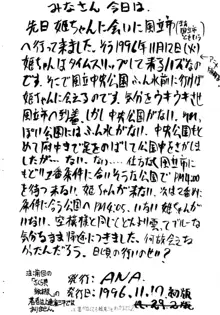 みなさん 今日は。
先日 姫ちゃんに会いに国立市
へ行って来ました。そう1996年11月12日(火)
姫ちゃんはタイムスリップして来るハズなの
です。そこで国立中央公園ふん水前に行けば
姫ちゃんに会えるのです。気分をウキウキさせ
国立市へ到着。しかし中央公園がない。それ
っぽい公園にはふん水がない。中央公園をもと
めて府中まで足をのばして公園中をさがしま
したが…ない。ない…。仕方なく国立市にも
どり1番条件に合いそうな公園でPM4:00
を待って来ない。姫ちゃんが来ない。次は2番めに
条件に合う公園へPM4:05。いない姫ちゃんが
いない。空模様と同じくどんより曇ってブルーな
気分なまま帰途につきました。何故会えな
かったんだろう。日頃の行いのせい?
発行:ANA.
発行日:1996.11.17 初版